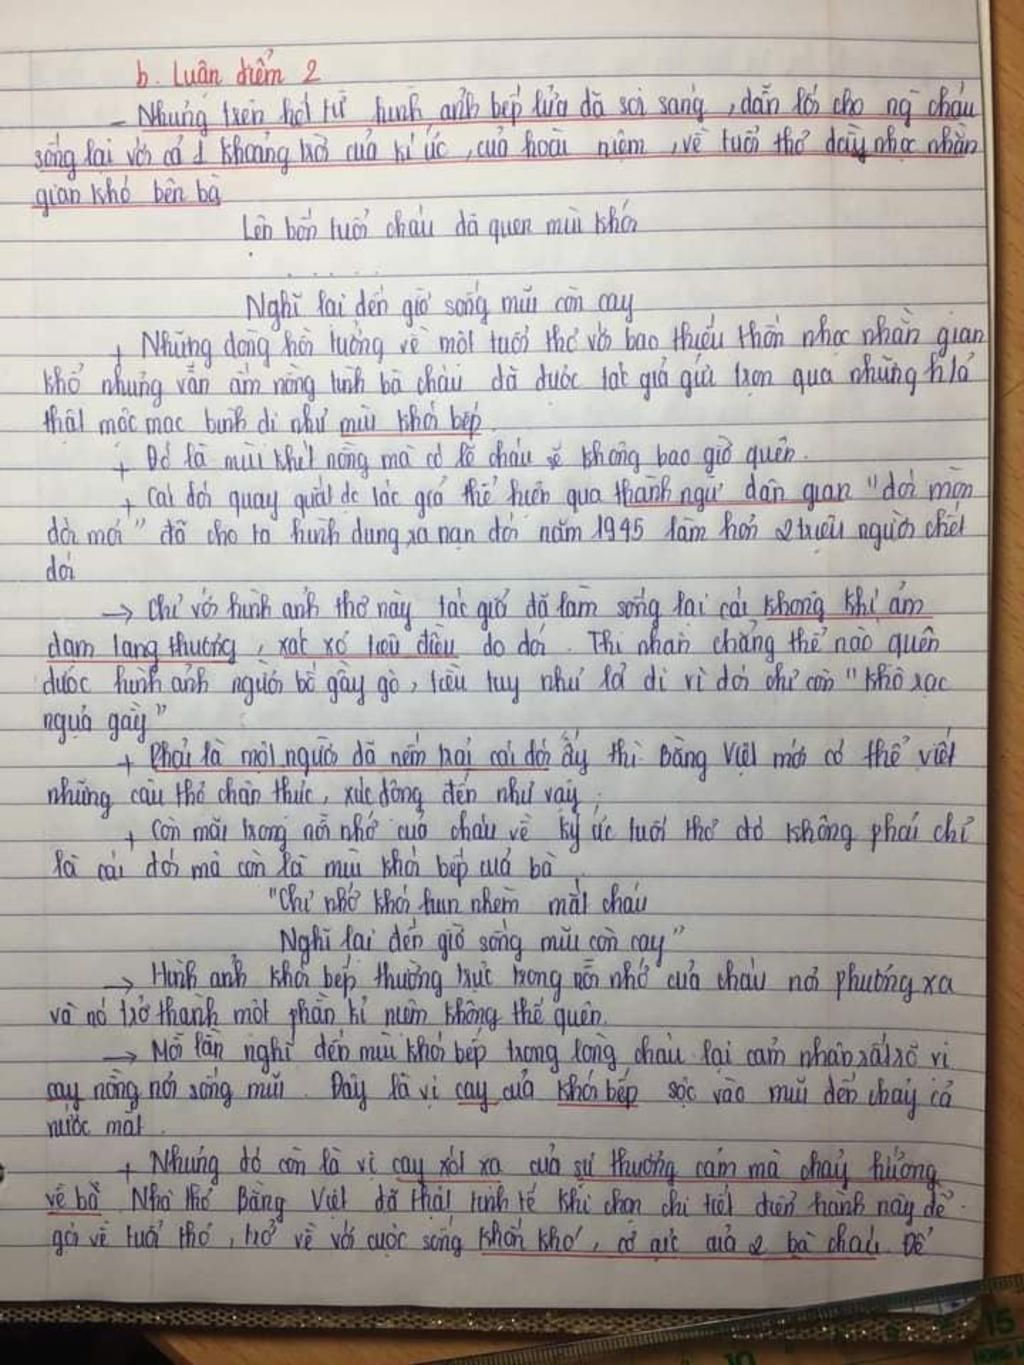 b. Luận điểm 2
- Nhưng trên hết từ hình ảnh bếp lửa đã soi sáng, dẫn lối cho ng cháu
sống lại với cả 1 khoảng trời của kí ức, của hoài niệm, về tuổi thơ đầy nhọc nhằn
gian khó bên bà
Lên bốn tuổi cháu đã quen mùi khói
. . . . . .
Nghĩ lại đến giờ sống mũi còn cay
+ Những dòng hồi tưởng về một tuổi thơ với bao thiếu thốn nhọc nhằn gian
khổ nhưng vẫn ấm nồng tình bà cháu đã được tác giả gửi trọn qua những h/ả
thật mộc mạc bình dị như mùi khói bếp.
+ Đó là mùi khét nồng mà có lẽ cháu sẽ không bao giờ quên.
+ Cái đói quay quắt đc tác giả thể hiện qua thành ngữ dân gian "đói mòn
đói mỏi" đã cho ta hình dung ra nạn đói năm 1945 làm hơn 2 triệu người chết
đói
→ Chỉ với hình ảnh thơ này tác giả đã làm sống lại cái không khí ảm
đạm tang thương, xơ xác tiêu điều do đói. Thi nhân chẳng thể nào quên
được hình ảnh người bố gầy gò, tiều tụy như lả đi vì đói chỉ còn "khô rạc
ngựa gầy"
+ Phải là một người đã nếm trải cái đói ấy thì Bằng Việt mới có thể viết
những câu thơ chân thực, xúc động đến như vậy.
+ Còn mãi trong nỗi nhớ của cháu về ký ức tuổi thơ đó không phải chỉ
là cái đói mà còn là mùi khói bếp của bà.
"Chỉ nhớ khói hun nhèm mắt cháu
Nghĩ lại đến giờ sống mũi còn cay"
→ Hình ảnh khói bếp thường trực trong nỗi nhớ của cháu nơi phương xa
và nó trở thành một phần kỉ niệm không thể quên.
→ Mỗi lần nghĩ đến mùi khói bếp trong lòng cháu lại cảm nhận rất rõ vị
cay nồng nơi sống mũi. Đây là vị cay của khói bếp sộc vào mũi đến chảy cả
nước mắt.
+ Nhưng đó còn là vị cay xót xa của sự thương cảm mà cháu hướng
về bà. Nhà thơ Bằng Việt đã thật tinh tế khi chọn chi tiết điển hành này để
gợi về tuổi thơ, trở về với cuộc sống khốn khó, cơ cực của 2 bà cháu. Để